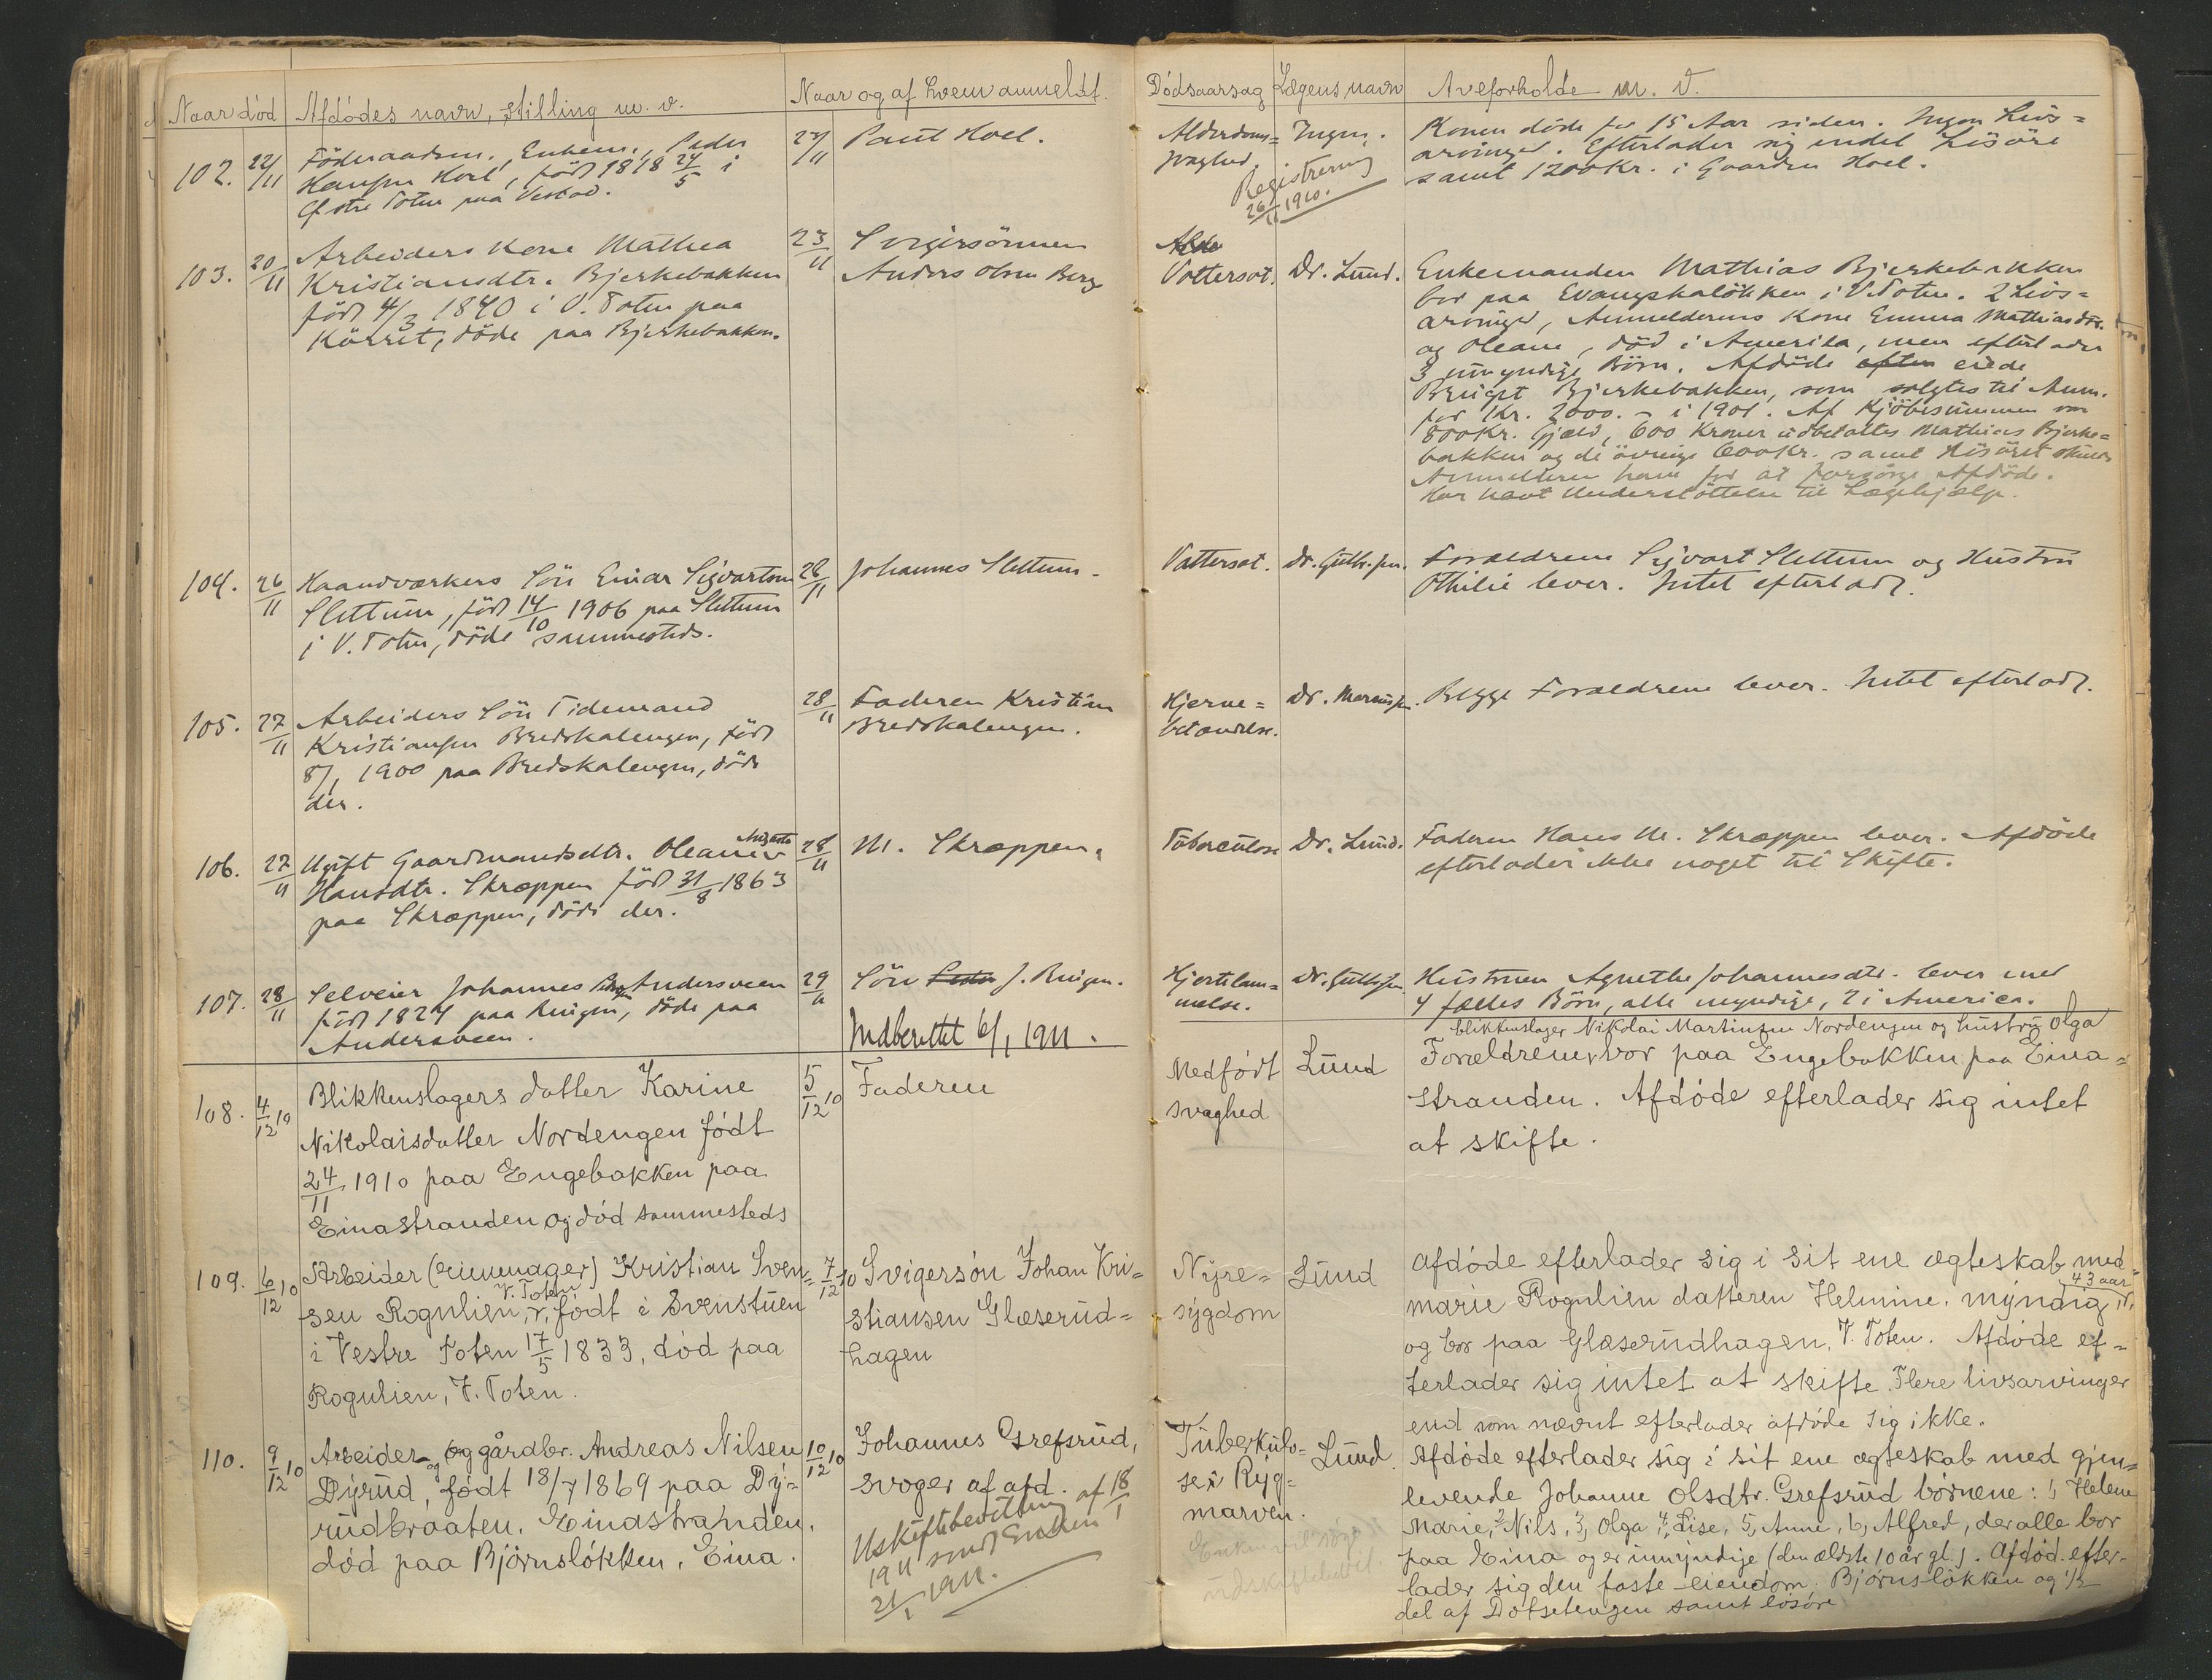 Naar død | Afdødes navn, stilling m. v. | Naar og af hvem anmeldt. | Dødsaarsag | Lægens navn | Arveforholde m. v.
102. 22/11
Föderaadsm., Enkem., Peder
Hansen Hoel, född 1818 24/5 i
Östre Toten paa Vestad.
22/11 Paul Hoel.
Alderdoms=
svaghed.
Ingen.
Registrering
26/11 1910.
Konen döde for 15 Aar siden. Ingen Livs=
arvinger. Efterlader sig endel Lösöre
samt 1200 Kr. i Gaarden Hoel.
103. 20/11
Arbeiders Kone Mathea
Kristiansdtr. Bjerkebakken
född 4/3 1840 i V. Toten paa
Körret, döde paa Bjerkebakken.
23/11 Svigersönnen
Anders Olsen Berg
Alde
Vattersot.
Dr. Lund.
Enkemanden Mathias Bjerkebakken
bor paa Evangskalökken i V. Toten. 2 Livs=
arvinger, Anmelderens Kone Emma Mathiasdtr.
og Oleane, död i Amerika, men efterlader
3 umyndige Börn. Afdöde often eiede
Bruget Bjerkebakken, som solgtes til Anm.
for Kr. 2000.- i 1901. Af Kjöbesummen var
800 Kr. Gjæld, 600 Kroner udbetaltes Mathias Bjerke=
bakken og de övrige 600 Kr. samt Lösöret skulde
Anmelderen have for at forsörge Afdöde.
Har havt Understöttelse til Lægehjælp.
104. 26/11
Haandværkers Sön Einar Sigvartsen
Slettum, född 14/10 1906 paa Slettum
i V. Toten, döde sammesteds.
28/11 Johannes Slettum.
Vattersot.
Dr. Gulbr.sen.
Forældrene Sigvart Slettum og Hustru
Othilie lever. Intet efterladt.
105. 27/11
Arbeiders Sön Tidemand
Kristiansen Bredskalengen, född
8/1 1900 paa Bredskalengen, döde
der.
28/11 Faderen Kristian
Bredskalengen.
Hjerne=
betændelse.
Dr. Marcussen.
Begge Forældrene lever. Intet efterladt.
106. 27/11
Augusta
Ugift Gaardmandsdtr. Oleane
Hansdtr. Skræppen född 31/8 1863
paa Skræppen, döde der.
28/11 M. Skræppen.
Tuberculose
Dr. Lund.
Faderen Hans M. Skræppen lever. Afdöde
efterlader ikke noget til Skifte.
107. 28/11
Selveier Johannes Andersveen
född 1827 paa Ruigen, döde paa
Andersveen.
29/11 Sön J. Ruigen.
Indberettet 6/1 1911.
Hjertelam=
melse.
Dr. Gulbr.sen
Hustruen Agnethe Johannesdtr. lever med
4 fælles Börn, alle myndige, 2 i America.
108. 4/12 10
Blikkenslagers datter Karine
Nikolaisdatter Nordengen født
24/11 1910 paa Engebakken paa
Einastranden og død sammesteds
5/12 10 Faderen
Medfødt
svaghed
Lund
blikkenslager Nikolai Martinsen Nordengen og hustru Olga
Forældrene, bor paa Engebakken paa Eina=
stranden. Afdøde efterlader sig intet
at skifte.
109. 6/12 10
Arbeider (rieumager) Kristian Sven=
V. Toten
sen Rognlien, født i Svenstuen
i Vestre Toten 17/5 1833, død paa
Rognlien, V. Toten.
7/12 10 Svigersøn Johan Kri=
stiansen Glæserud=
hagen
Nyre=
sygdom
Lund
Afdøde efterlader sig i sit ene ægteskab med
43 aar
marie Rognlien datteren Helmine, myndig,
og bor paa Glæserudhagen, V. Toten. Afdøde ef=
terlader sig intet at skifte. Flere livsarvinger
end som nævnt efterlader afdøde sig ikke.
110. 9/12 10
Arbeider og gårdbr. Andreas Nilsen
Dyrud, født 18/7 1869 paa Dy=
rudbraaten, Einastranden,
død paa Bjørnsløkken, Eina.
10/12 10 Johannes Grefsrud,
svoger af afd.
Uskiftebevilling af 18/1
1911 sendt Enken
21/1 1911.
Tuberkulo=
se i Ryg=
marven.
Lund.
Afdøde efterlader sig i sit ene ægteskab med gjen=
levende Johanne Olsdtr. Grefsrud børnene: 1, Helene
Marie, 2, Nils, 3, Olga, 4, Lise, 5, Anne, 6, Alfred, der alle bor
paa Eina og er umyndige (den ældste 10 år gl.). Afdød. efter=
lader sig den faste eiendom, Bjørnsløkken og 1/2
del af Dotsetengen samt løsøre